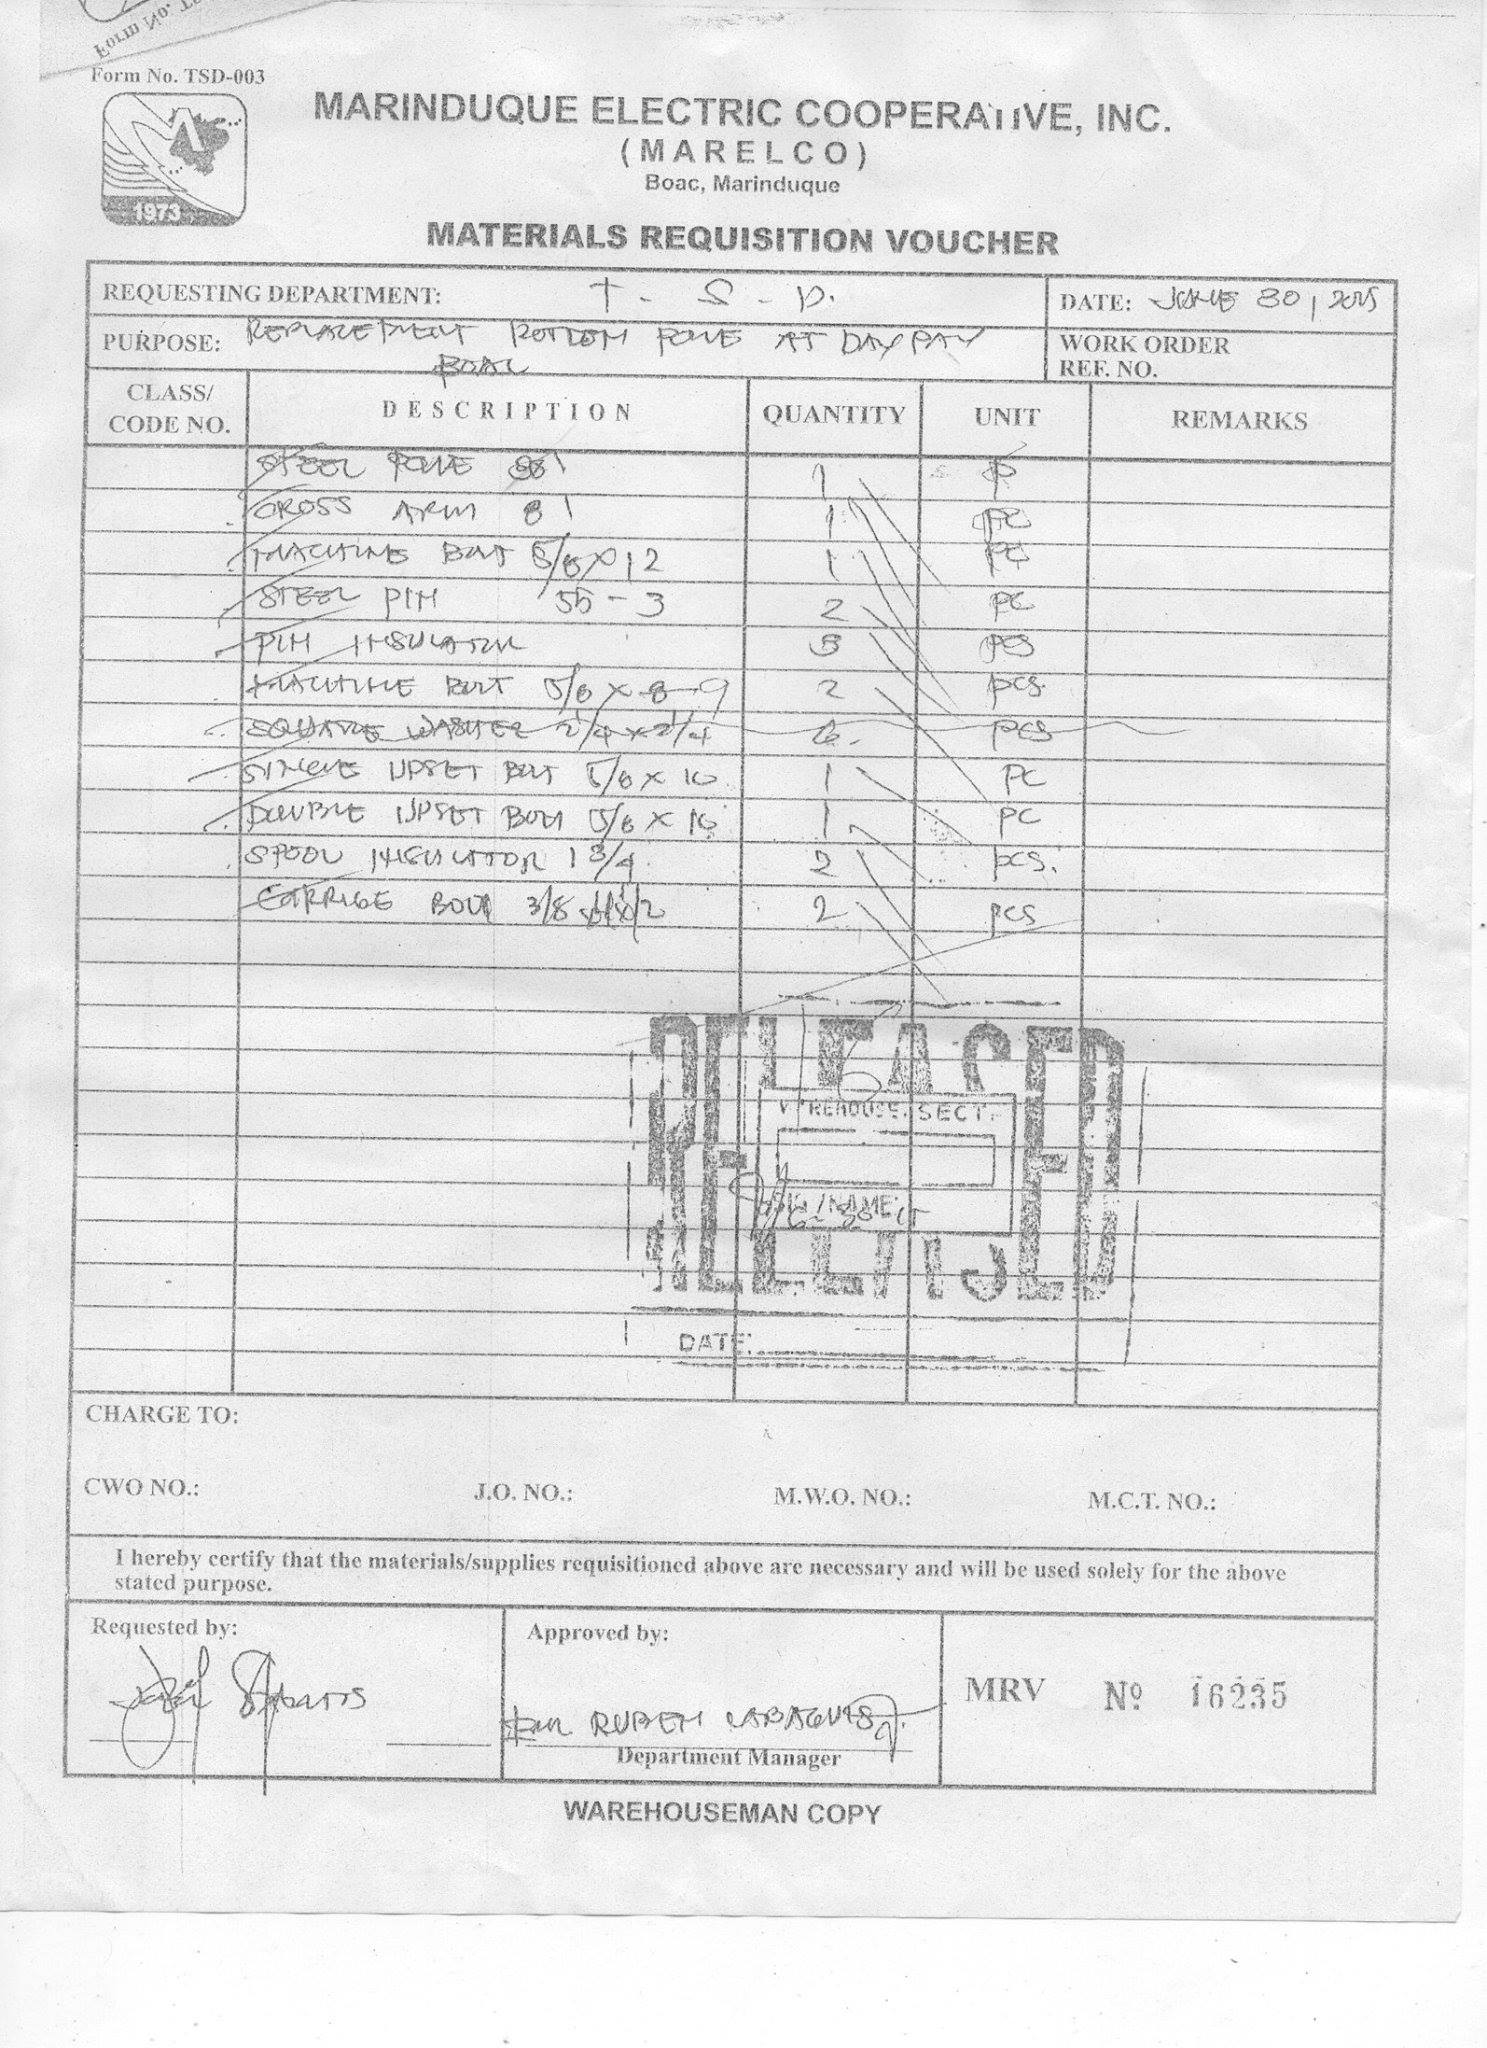 Form No.
Form No. TSD-003
1973
MARINDUQUE ELECTRIC COOPERATIVE, INC.
(MARELCO)
Boac, Marinduque
MATERIALS REQUISITION VOUCHER
REQUESTING DEPARTMENT: T - S - D. DATE: JUNE 30, 2015
PURPOSE: REPLACEMENT ROTTEN POLE AT DAYPAY WORK ORDER
BOAC REF. NO.
CLASS/ CODE NO. DESCRIPTION QUANTITY UNIT REMARKS
STEEL POLE 1
CROSS ARM 8' 1 PC
MACHINE BOLT 5/8 X 12 1 PC
STEEL PIN 55-3 2 PC
PIN INSULATOR 3 PCS
MACHINE BOLT 5/8 X 8 9 2 PCS.
SQUARE WASHER 2 1/4 X 2 1/4 6. PCS
SINGLE UPSET BOLT 5/8 X 10 1 PC
DOUBLE UPSET BOLT 5/8 X 10 1 PC
SPOOL INSULATOR 1 3/4 2 PCS.
CARRIGE BOLT 3/8 2 PCS
RELEASED
WAREHOUSE SECT.
SIG/NAME:
RELEASED
DATE:
CHARGE TO:
CWO NO.: J.O. NO.: M.W.O. NO.: M.C.T. NO.:
I hereby certify that the materials/supplies requisitioned above are necessary and will be used solely for the above
stated purpose.
Requested by: Approved by:
MRV Nº 16235
RUBEN
Department Manager
WAREHOUSEMAN COPY